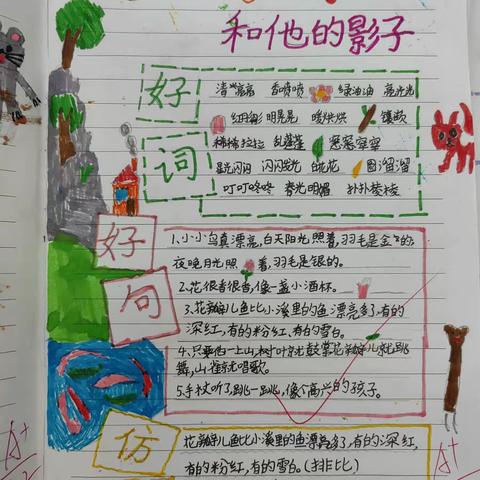 和他的影子
好词
清喳喳 香喷喷 绿油油 亮光光
红彤彤 明晃晃 暖烘烘 馒头
稀稀拉拉 乱蓬蓬 窸窸窣窣
星光闪闪 闪闪发光 白花花 圆溜溜
叮叮咚咚 春光明媚 扑扑棱棱
好句
1.小小鸟真漂亮,白天阳光照着,羽毛是金的,
夜晚月光照着,羽毛是银的。
2.花很香很香,像一盏小酒杯。
3.花瓣儿鱼比小溪里的鱼漂亮多了,有的
深红,有的粉红,有的雪白。
4.只要他一上山,树叶就鼓掌,花瓣儿就跳
舞,山雀就唱歌。
5.手杖听了,跳一跳,像个高兴的孩子。
仿
花瓣儿鱼比小溪里的鱼漂亮多了,有的深红,
有的粉红,有的雪白。(排比)
A+
A+